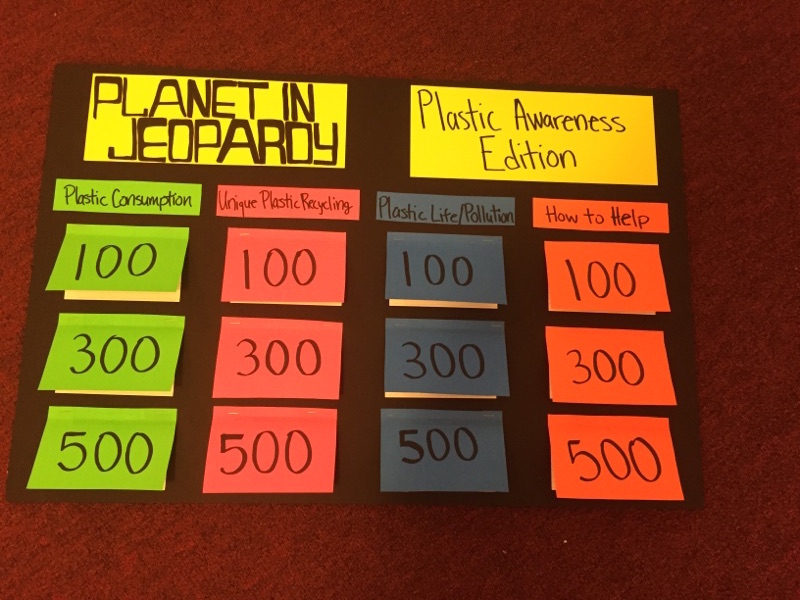 PLANET IN
JEOPARDY
Plastic Awareness
Edition
Plastic Consumption
Unique Plastic Recycling
Plastic Life/Pollution
How to Help
100
100
100
100
300
300
300
300
500
500
500
500